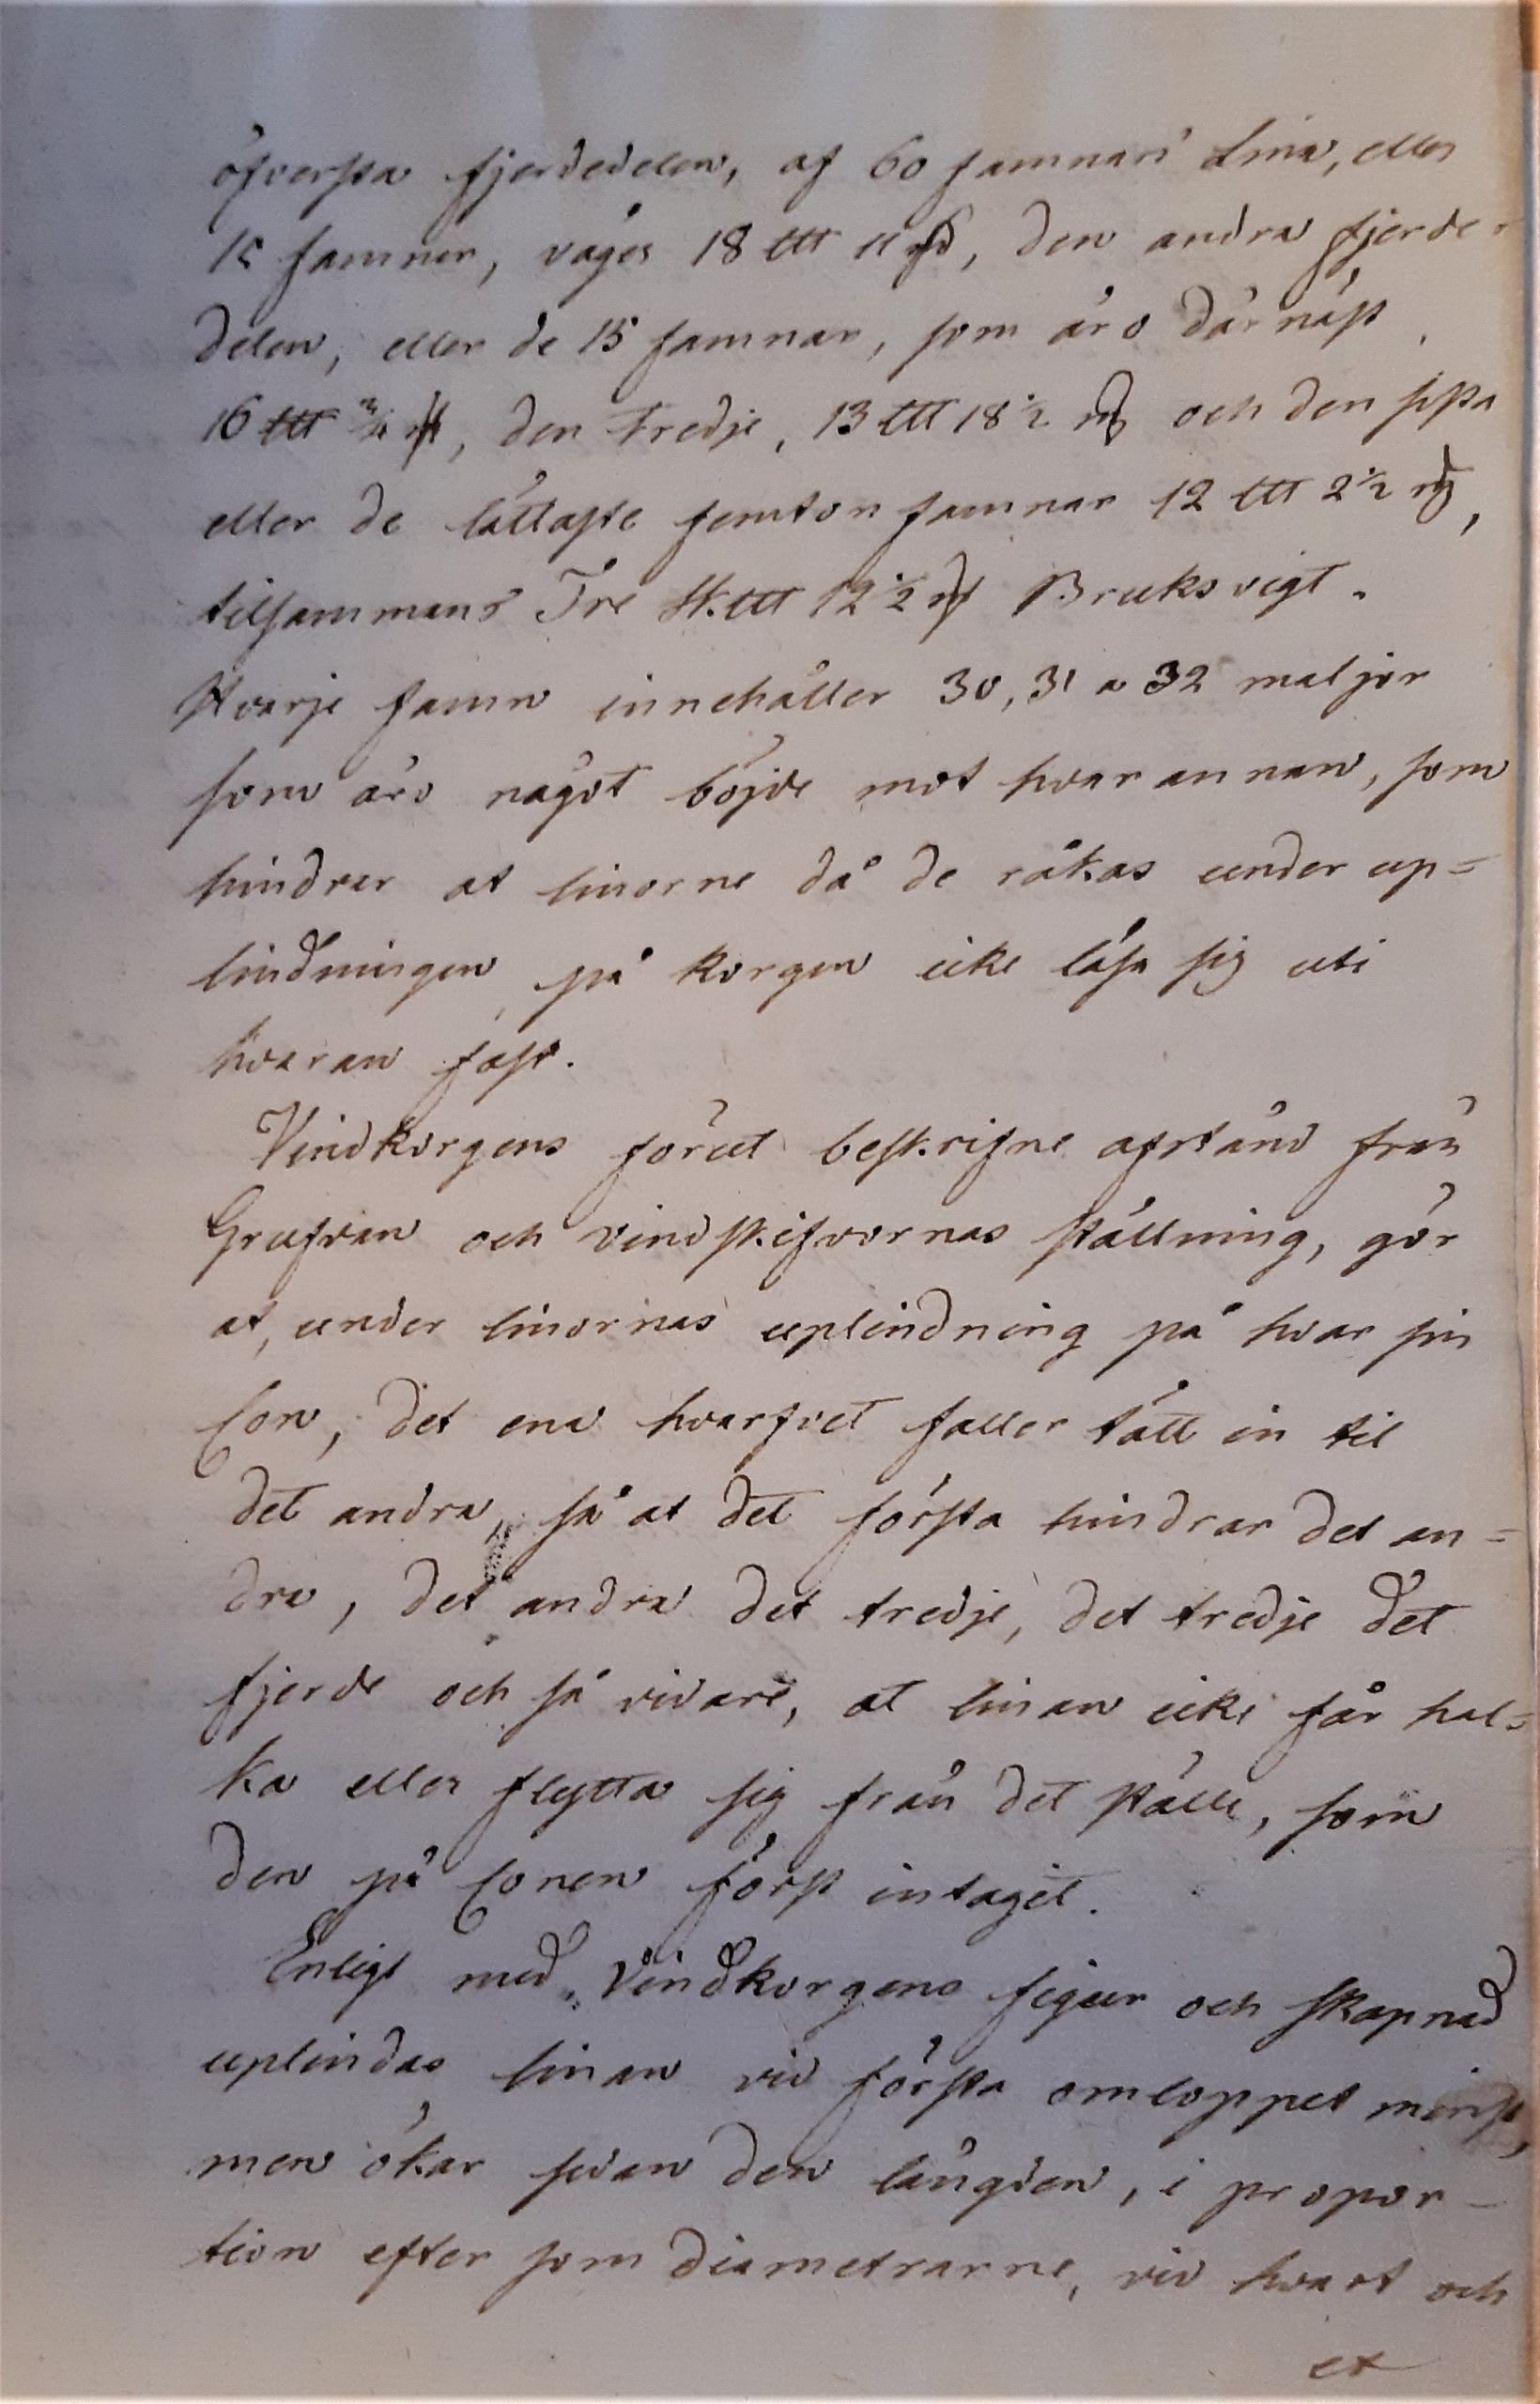 öfversta fjerdedelen, af 60 famnars Lina, eller
15 famnar, väges 18 ltt 11 m℔, den andra fjerde-
delen, eller de 15 famnar, som äro därnäst,
16 ltt 3/4 m℔, den tredje, 13 ltt 18 1/2 m℔ och den sista
eller de lättaste femton famnar 12 ltt 2 1/2 m℔,
tilsammans Tre Sk.ltt 12 1/2 m℔ Bruksvigt.
Hvarje famn innehåller 30, 31 a 32 maljor
som äro något böjde mot hvarannan, som
hindrar at linorne då de råkas under up=
lindningen på korgen icke låsa sig uti
hvaran fast.
Vindkorgens förut beskrifne afstånd från
Grufvan och vindskifvornas ställning, gör
at, under linornas uplindning på hvar sin
Con, det ena hvarfvet faller tätt in til
det andra, så at det första hindrar det an=
dra, det andra det tredje, det tredje det
fjerde och så vidare, at linan icke får hal=
ka eller flytta sig från det ställe, som
den på Conen först intagit.
Enligt med Vindkorgens figur och skapnad
uplindas linan vid första omloppet minst,
men ökar sedan den längden, i propor-
tion efter som diametrarne, vid hvart och
et